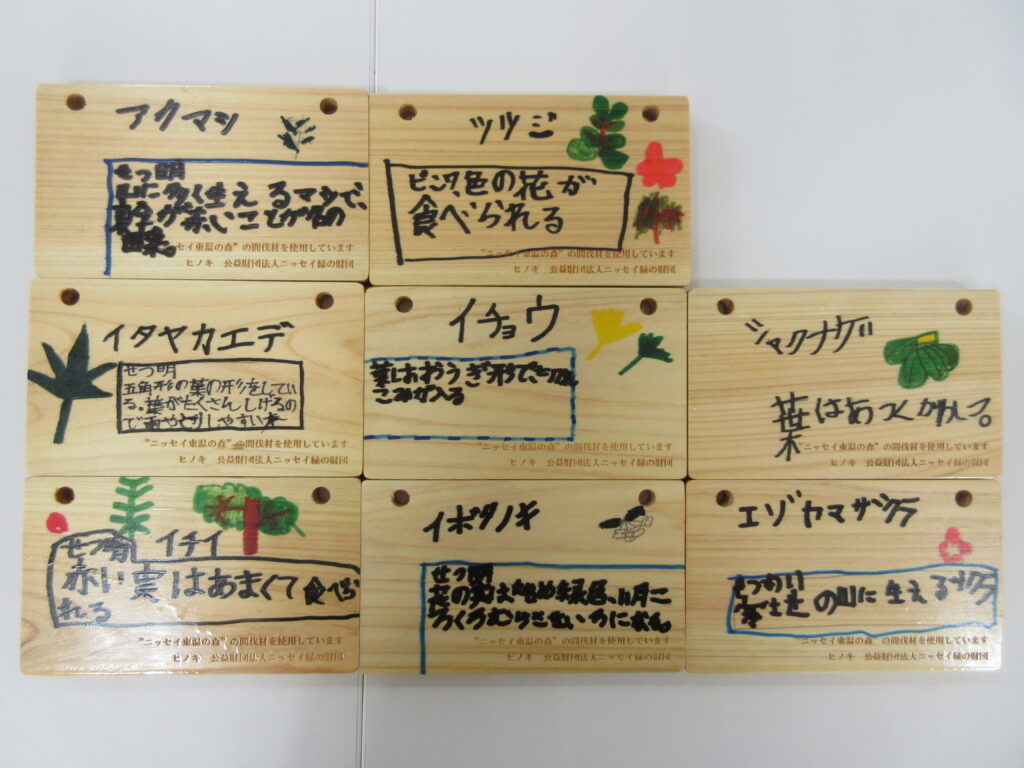 アクマシ
せつ明
山に多く生えるマツで、
幹が赤いことが名の
由来。
セイ東温の森”の間伐材を使用しています
ヒノキ　公益財団法人ニッセイ緑の財団
ツツジ
ピンク色の花が
食べられる
“ニッセイ東温の森”の間伐材を使用しています
ヒノキ　公益財団法人ニッセイ緑の財団
イタヤカエデ
せつ明
五角形の葉の形をしてい
る。葉がたくさんしげるの
で雨やどりしやすい木
“ニッセイ東温の森”の間伐材を使用しています
ヒノキ　公益財団法人ニッセイ緑の財団
イチョウ
葉はおうぎ形で
こみが入る
“ニッセイ東温の森”の間伐材を使用しています
ヒノキ　公益財団法人ニッセイ緑の財団
シャクナゲ
葉はあつくかたい。
“ニッセイ東温の森”の間伐材を使用しています
ヒノキ　公益財団法人ニッセイ緑の財団
イチイ
せつ明
赤い実はあまくて食べら
れる
“ニッセイ東温の森”の間伐材を使用しています
ヒノキ　公益財団法人ニッセイ緑の財団
イボタノキ
せつ明
の実は始め緑色、11月こ
ろくろむらさきいろになる
“ニッセイ東温の森”の間伐材を使用しています
ヒノキ　公益財団法人ニッセイ緑の財団
エゾヤマザクラ
せつめい
の山に生えるサクラ
“ニッセイ東温の森”の間伐材を使用しています
ヒノキ　公益財団法人ニッセイ緑の財団